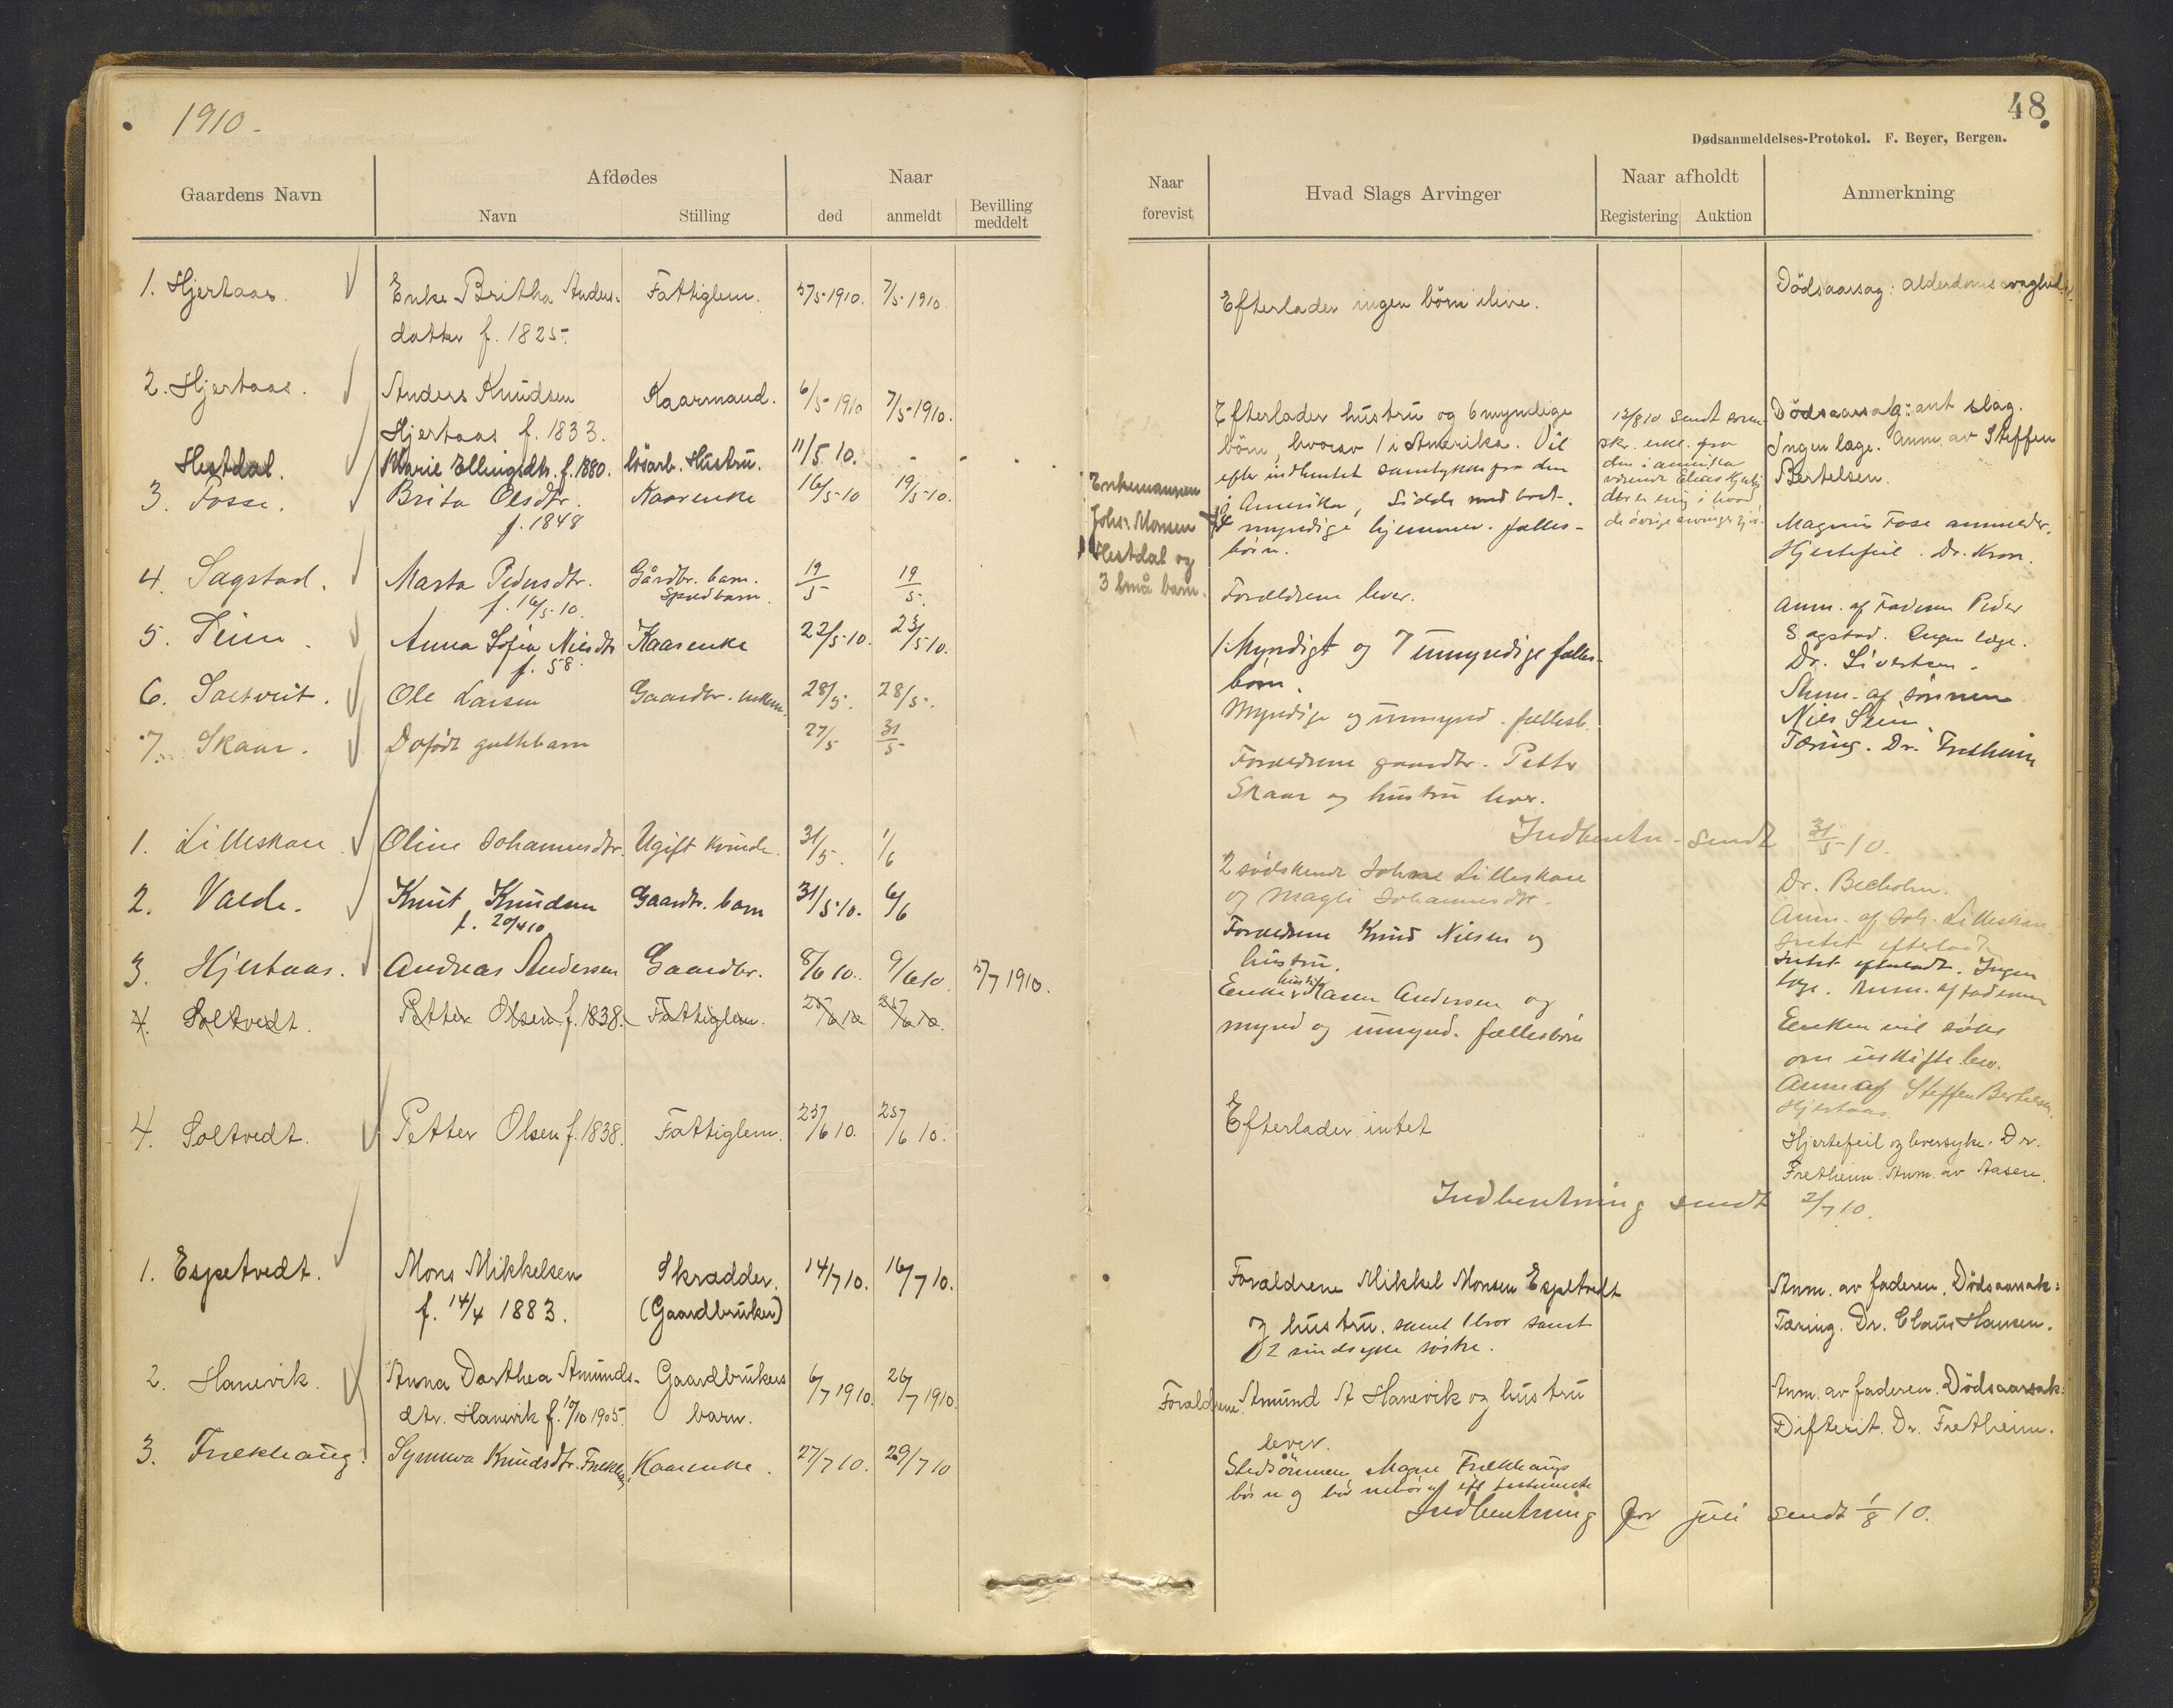 1910.
Gaardens Navn
Afdødes
Navn
Stilling
Naar
død
anmeldt
Bevilling
meddelt
1. Hjertaas.
Enke Britha Anders-
datter f. 1825.
Fattiglem.
5/5 1910.
7/5 1910.
2. Hjertaas.
Anders Knudsen
Hjertaas f. 1833.
Kaarmand.
6/5 1910
7/5 1910.
Hestdal.
Marie Ellingsdtr. f. 1880.
lösarb. Hustru.
11/5 10.
3. Fosse.
Brita Olsdtr.
f. 1848
Kaarenke
16/5 10
19/5 10.
4. Sagstad.
Marta Pedersdtr.
f. 16/5 10.
Gårdbr. barn.
Spædbarn.
19/5
19/5.
5. Seim.
Anna Sofia Nilsdtr
f. 58.
Kaarenke
22/5 10.
23/5 10.
6. Saltveit.
Ole Larsen
Gaardbr. enkem.
28/5.
28/5.
7. Skaar.
Dødfødt guttebarn
27/5
31/5
1. Lilleskare
Oline Johannesdtr.
Ugift kvinde.
31/5.
1/6
2. Valde.
Knut Knudsen
f. 20/4 10
Gaardbr. barn
31/5 10.
6/6
3. Hjertaas.
Andreas Andersen
Gaardbr.
8/6 10.
9/6 10
5/7 1910.
4. Soltvedt.
Petter Olsen f. 1838.
Fattiglem.
25/6 10
25/6 10.
4. Soltvedt.
Petter Olsen f. 1838.
Fattiglem.
25/6 10.
25/6 10.
1. Espetvedt.
Mons Mikkelsen
f. 14/4 1883.
Skrædder.
(Gaardbruker)
14/7 10.
16/7 10.
2. Hanevik.
Anna Dorthea Amunds-
dtr. Hanevik f. 10/10 1905.
Gaardbrukers
barn.
6/7 1910.
26/7 1910.
3. Frekhaug.
Synneva Knudsdtr. Frekhaug
Kaarenke.
27/7 10.
29/7 10
48
Dødsanmeldelses-Protokol. F. Beyer, Bergen.
Naar
forevist
Hvad Slags Arvinger
Naar afholdt
Registering
Auktion
Anmerkning
Efterlader ingen börn ilive.
Dödsaarsag: alderdomssvaghed.
Efterlader hustru og 6 myndige
börn, hvorav 1 i Amerika. Vil
efter indhentet samtykke fra den
i Amerika, sidde med boet.
13/8 10 sendt
skr. erkl. fra
den i amerika
værende Elias Hjert.
der er enig i hvad
de övrige arvinger gjör.
Dödsaarsag: ant slag.
Ingen læge. Anm. av Steffen
Bertelsen.
Enkemannen
Johs. Monsen
Hestdal og
3 små barn.
4 myndige hjemmev. fælles-
börn.
Magnus Fose anmelder.
Hjertefeil. Dr. Kron.
Forældrene lever.
Anm. af Faderen Peder
Sagstad. Ingen læge.
1 Myndigt og 7 umyndige fælles-
börn.
Dr. Sivertsen.
Anm. af sönnen
Nils Seim.
Myndige og umynd. fællesb.
Tæring. Dr. Fretheim
Forældrene gaardbr. Petter
Skaar og hustru lever.
Indberetn. sendt 31/5 10.
2 södskende Johne Lilleskare
og Magli Johannesdtr.
Dr. Beckolm.
Anm. af Joh. Lilleskare
Intet efterladt
Forældrene Knud Nilsen og
hustru.
Intet efterladt. Ingen
læge. Anm. af faderen
Enken Karen Andersen og
mynd og umynd. fællesbörn
Enken vil söke
om uskifte bev.
Anm af Steffen Bertelsen
Hjertaas.
Efterlader intet
Hjertefeil og leversyke. Dr.
Fretheim. Anm. av Aasen.
Indberetning sendt 2/7 10.
Forældrene Mikkel Monsen Espetvedt
og hustru. samt 1 bror samt
2 sindsyke söstre.
Anm. av faderen. Dödsaarsak:
Tæring. Dr. Claus Hansen.
Forældrene Amund A Hanevik og hustru
lever.
Anm. av faderen. Dödsaarsak:
Difterit. Dr. Fretheim.
Stedsönnen Mons Frekhaugs
börn og
Indberetning for juli sendt 1/8 10.